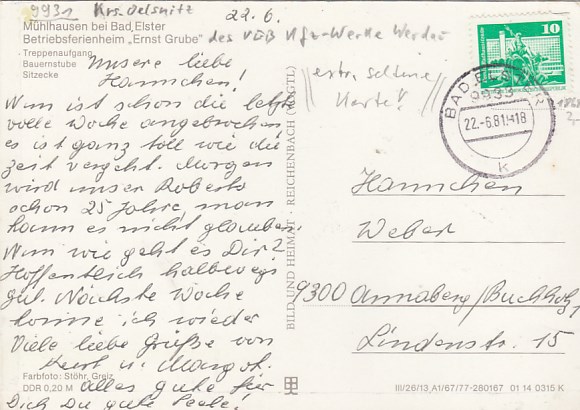 9931 Krs. Oelsnitz
22.6.
Mühlhausen bei Bad Elster
Betriebsferienheim „Ernst Grube"
des VEB Kfz-Werke Werdau
Treppenaufgang
Bauernstube
Sitzecke
extra seltene
Karte!
Unsere liebe
Hannchen!
Nun ist schon die letzte
volle Woche angebrochen,
es ist ganz toll wie die
Zeit vergeht. Morgen
wird unser Roberto
schon 25 Jahre, man
kann es nicht glauben.
Nun wie geht es Dir?
Hoffentlich halbwegs
gut. Nächste Woche
komme ich wieder
Viele liebe Grüße von
Kurt u. Margot.
alles gute für
Dich Du gute Seele!
Farbfoto: Stöhr, Greiz
DDR 0,20 M
BILD UND HEIMAT · REICHENBACH (VOGTL)
10
BAD ELSTER
9933
22.-6.81-18
k
Hannchen
Weber
9300 Annaberg/Buchholz,
Lindenstr. 15
III/26/13 A1/67/77-280167 01 14 0315 K